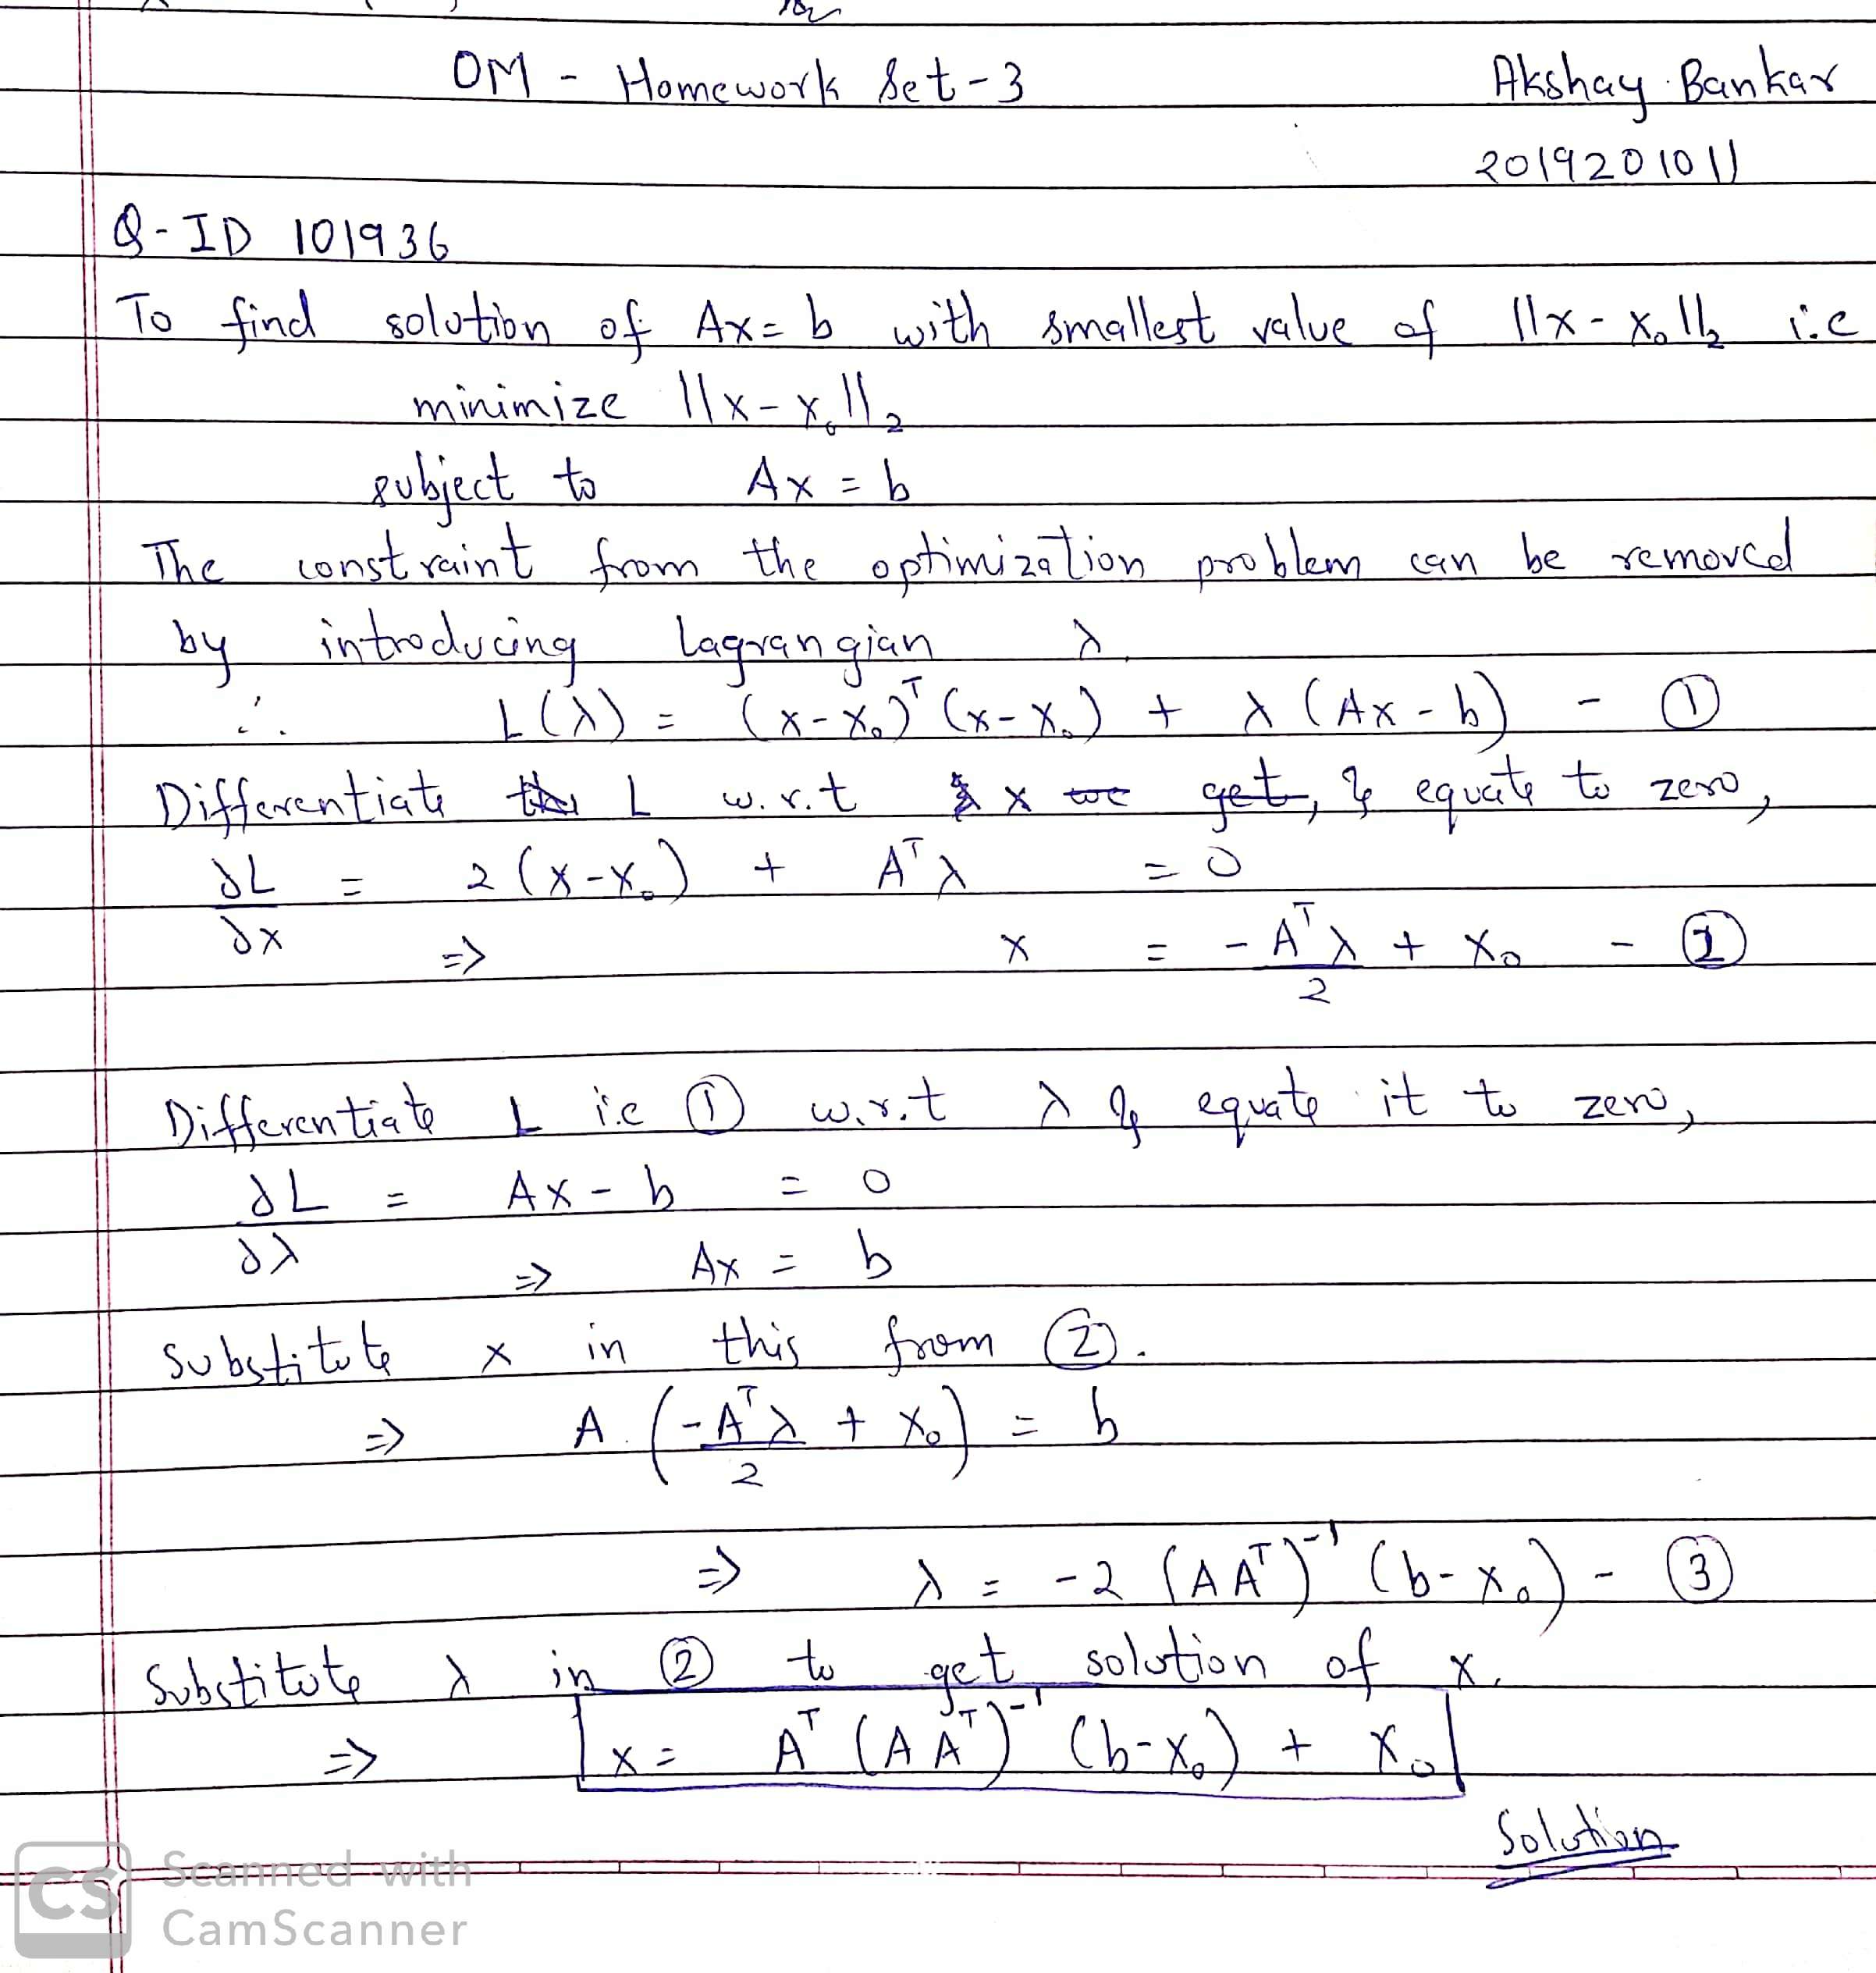 OM - Homework Set-3 Akshay Bankar
2019201011
Q-ID 101936
To find solution of Ax = b with smallest value of ||x-x₀||₂ i.e
minimize ||x-x₀||₂
subject to Ax = b
The constraint from the optimization problem can be removed
by introducing Lagrangian λ
∴ L(λ) = (x-x₀)ᵀ (x-x₀) + λ (Ax-b) - ①
Differentiate L w.r.t x we get, & equate to zero,
∂L/∂x = 2(x-x₀) + Aᵀλ = 0
⇒ x = -Aᵀλ/2 + x₀ - ②
Differentiate L i.e ① w.r.t λ & equate it to zero,
∂L/∂λ = Ax - b = 0
⇒ Ax = b
Substitute x in this from ②.
⇒ A. (-Aᵀλ/2 + x₀) = b
⇒ λ = -2 (AAᵀ)⁻¹ (b-x₀) - ③
Substitute λ in ② to get solution of x.
⇒ x = Aᵀ (AAᵀ)⁻¹ (b-x₀) + x₀
Solution
CS Scanned with
CamScanner